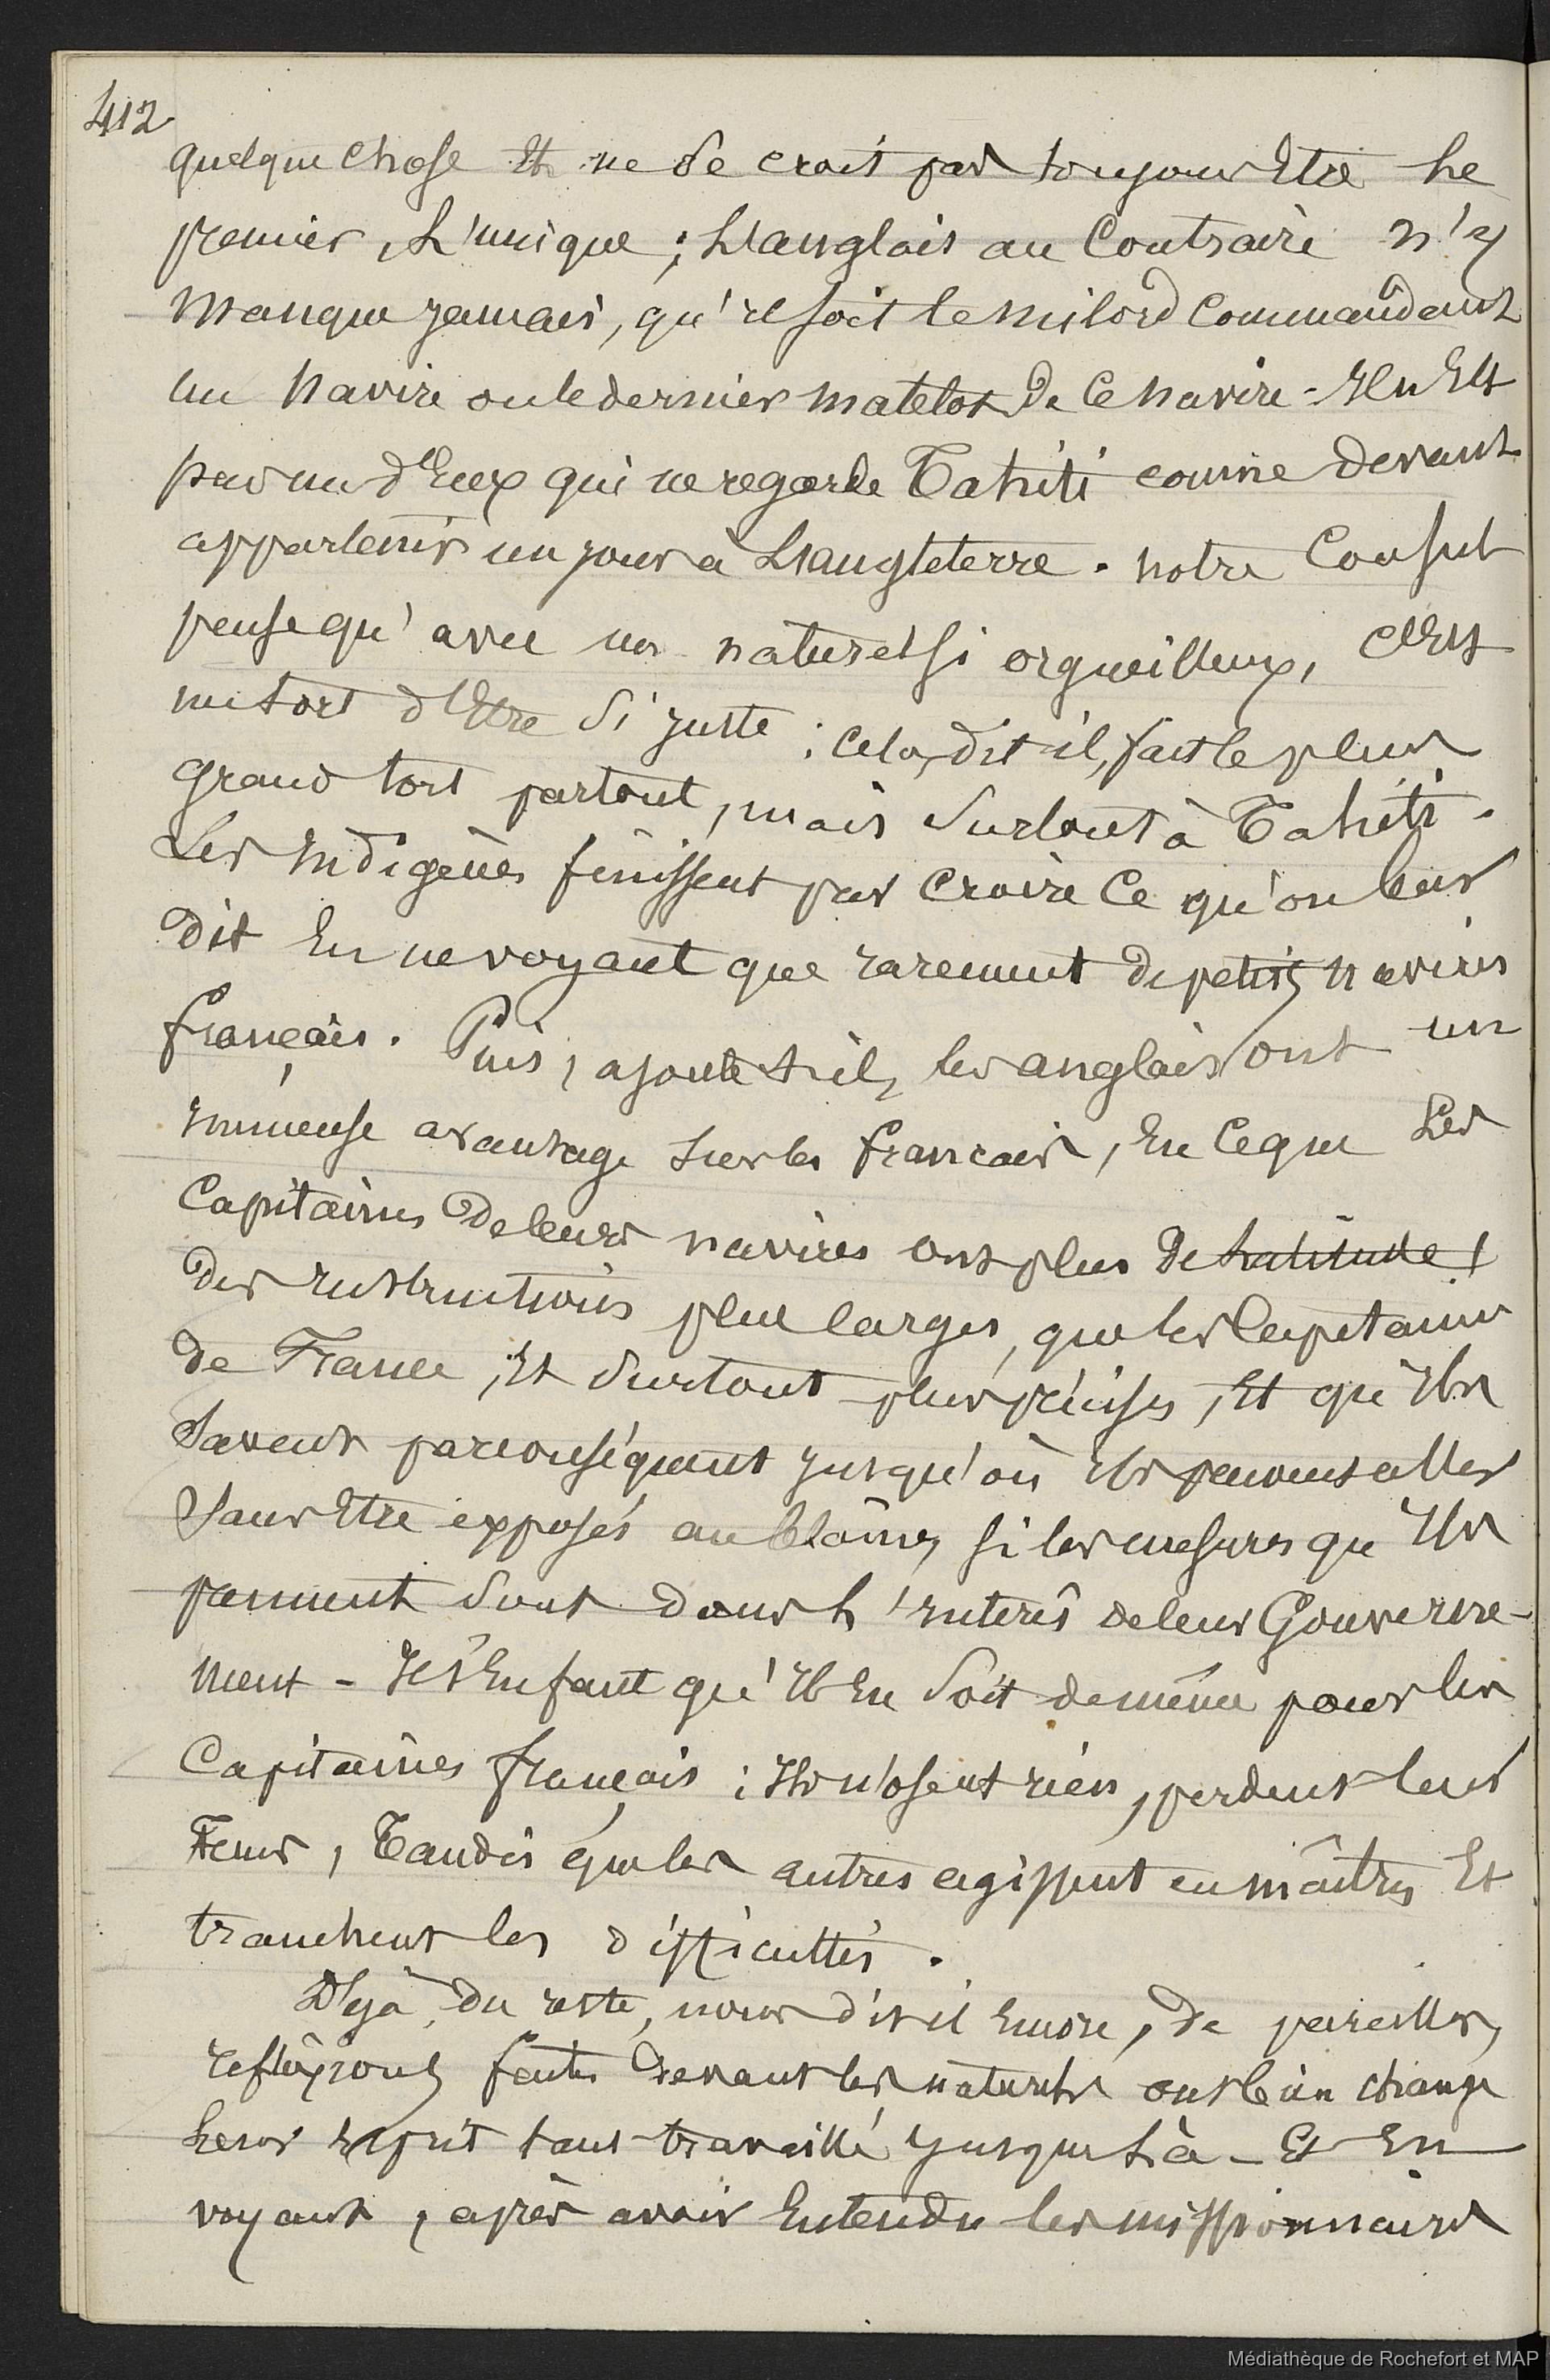 412
quelque chose et ne se croit pas toujours Etre Le
premier, L'unique; L'anglais au Contraire n'y
manque jamais, qu'il soit le milord Commandant
un Navire ou le dernier matelot de Ce Navire - Il n'Est
pas un d'Eux qui ne regarde Tahiti comme devant
appartenir un jour à L'angleterre. Notre Consul
pense qu'avec un naturel si orgueilleux, C'Est
un tort d'Etre si juste; Cela, dit-il, fait le plus
grand tort partout, mais surtout à Tahiti.
Les Indigènes finissent par Croire Ce qu'on leur
dit En ne voyant que rarement de petits navires
français. Puis, ajoute t-il, les anglais ont un
immense avantage sur les francais, En Ceque Les
Capitaines de leurs navires ont plus de Latitude,
des Instructions plus larges, que les Capitaines
de France, Et surtout plus précises, Et qu'Ils
savent parconséquent jusqu'où Ils peuvent aller
sans Etre exposés au blâme, si les mesures qu'Ils
prennent sont dans L'Interêt de leur Gouverne-
ment - Il s'En faut qu'Il En soit de même pour les
Capitaines français; Ils n'osent rien, perdent leur
tems, Tandis que les autres agissent en maîtres Et
tranchent les difficultés.
Déjà, du reste, nous dit-il Encore, de pareilles
reflexions faites devant les naturels ont bien changé
Leur Esprit tant travaillé jusque Là - Et En
voyant, après avoir Entendu les missionnaires
Médiathèque de Rochefort et MAP